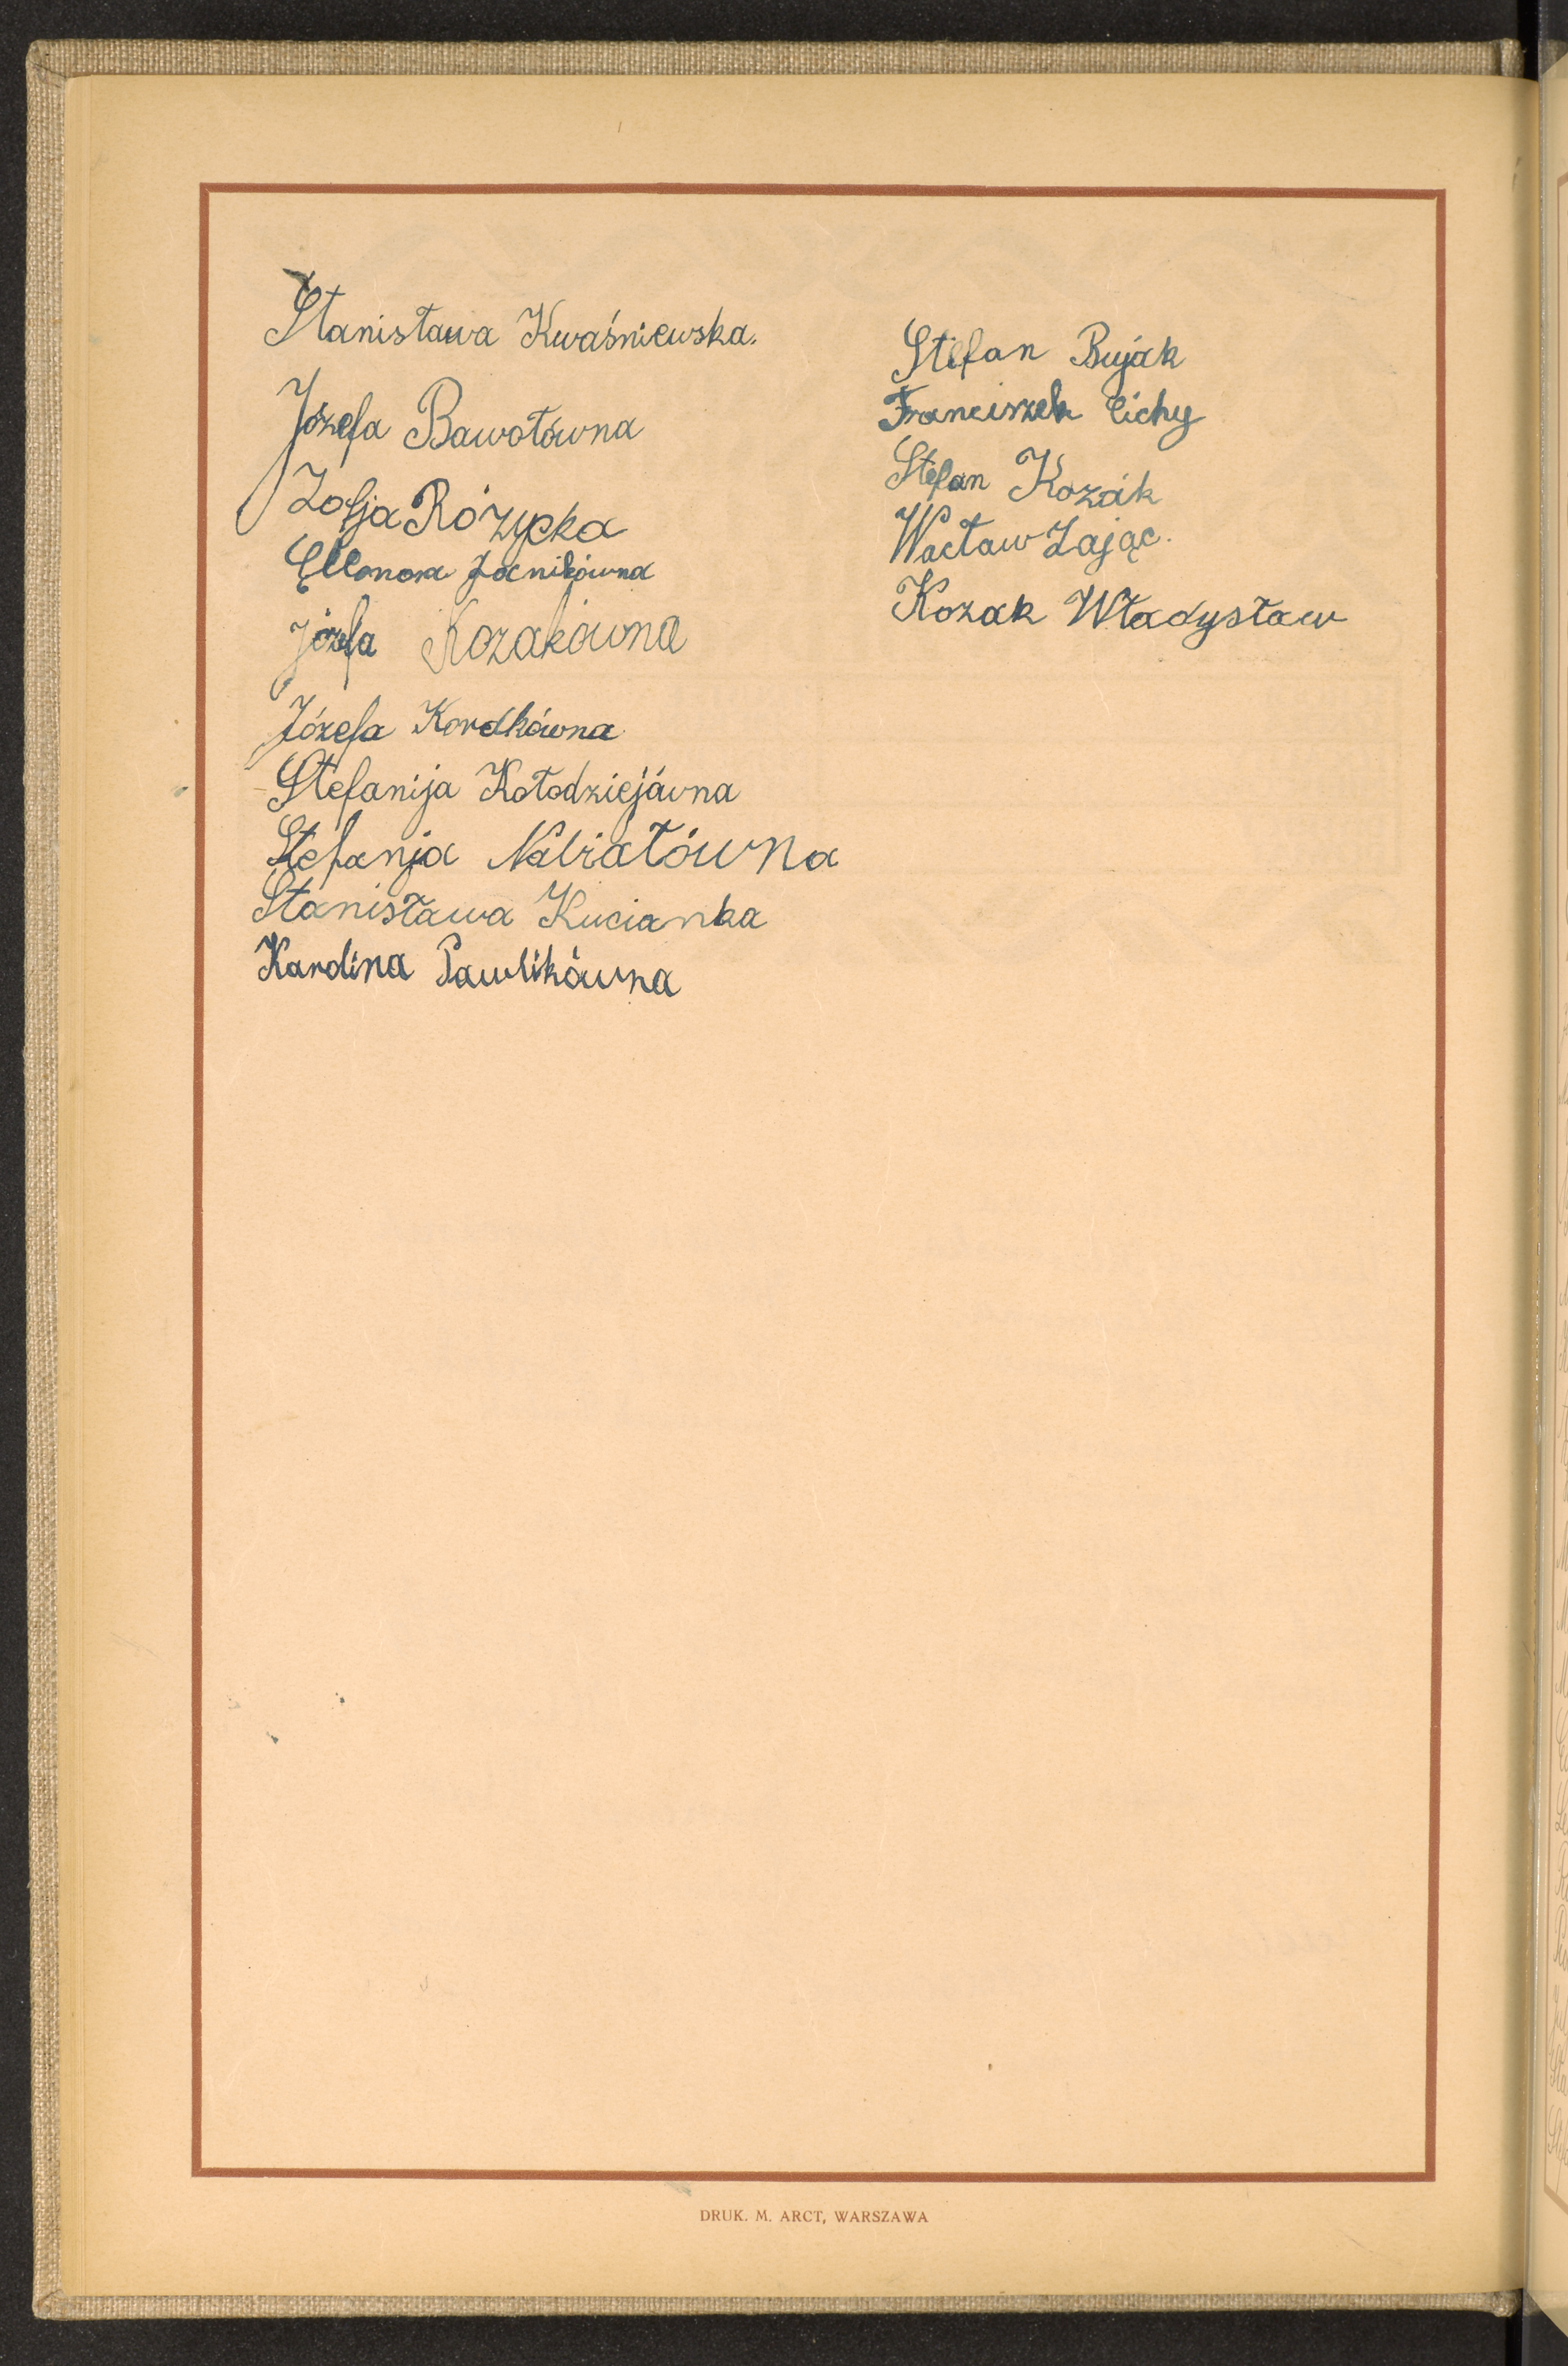 Stanisława Kwaśniewska.
Józefa Bawołówna
Zofja Różycka
Józefa Kozakówna
Józefa Kordkówna
Stefanija Kołodziejówna
Stefanja Nabiałówna
Stanisława Kucianka
Karolina Pawlikówna
Stefan Bujak
Franciszek Cichy
Stefan Kozak
Wacław Zając.
Kozak Władysław
DRUK. M. ARCT, WARSZAWA